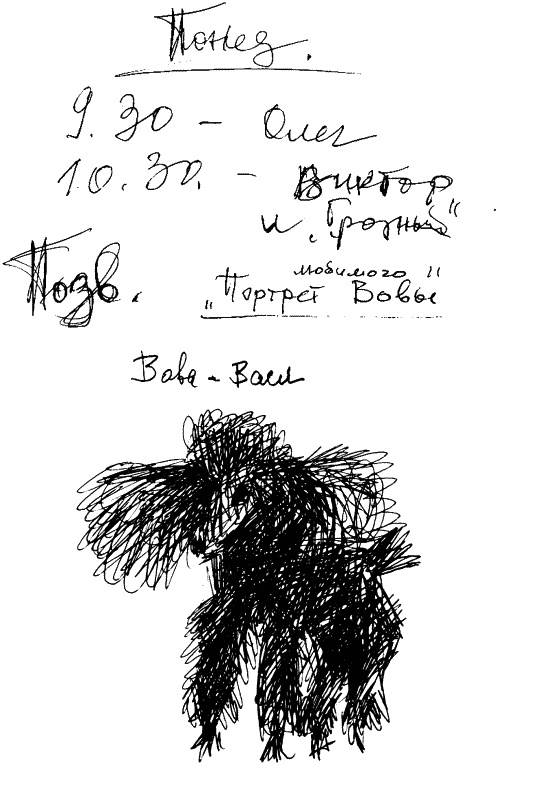 Понед.
9.30 - Олег
10.30. - Виктор
и „Грозный"
Позв.
любимого "
„Портрет Вовы
Вова - Васи